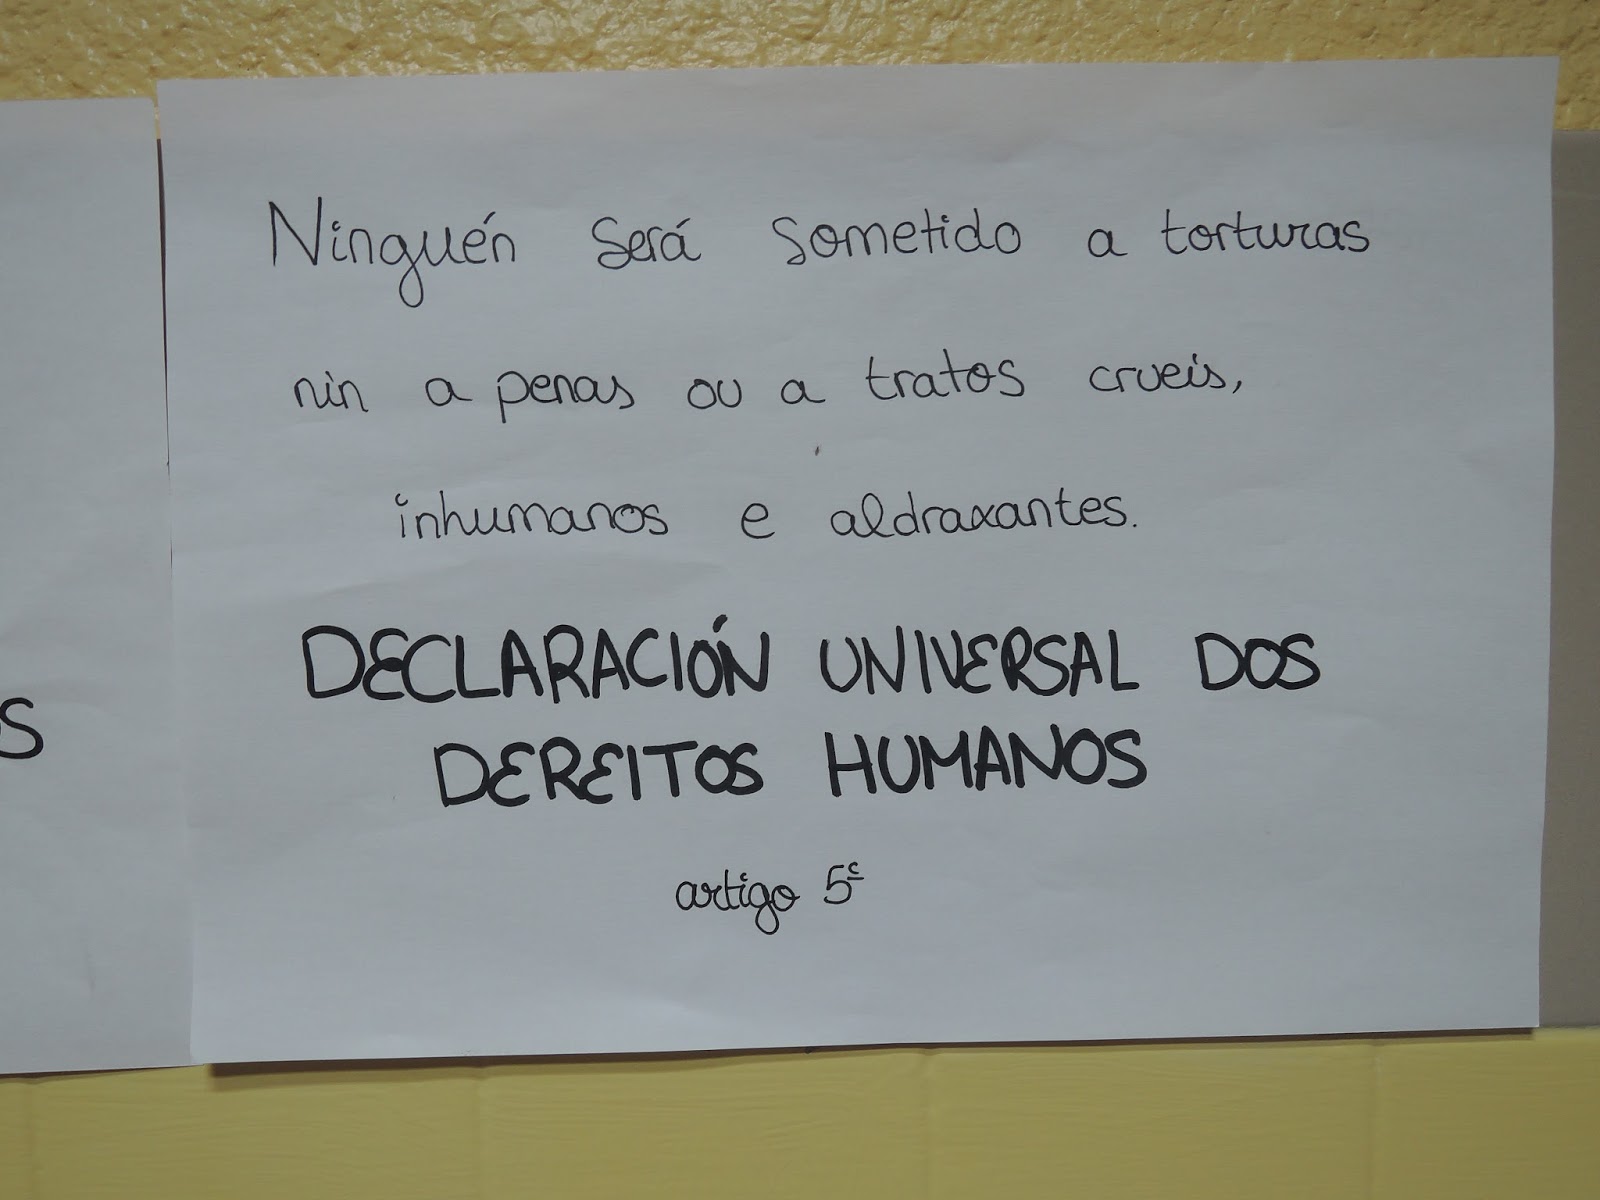 Ninguén será sometido a torturas
nin a penas ou a tratos crueis,
inhumanos e aldraxantes.
DECLARACIÓN UNIVERSAL DOS
DEREITOS HUMANOS
artigo 5º
S